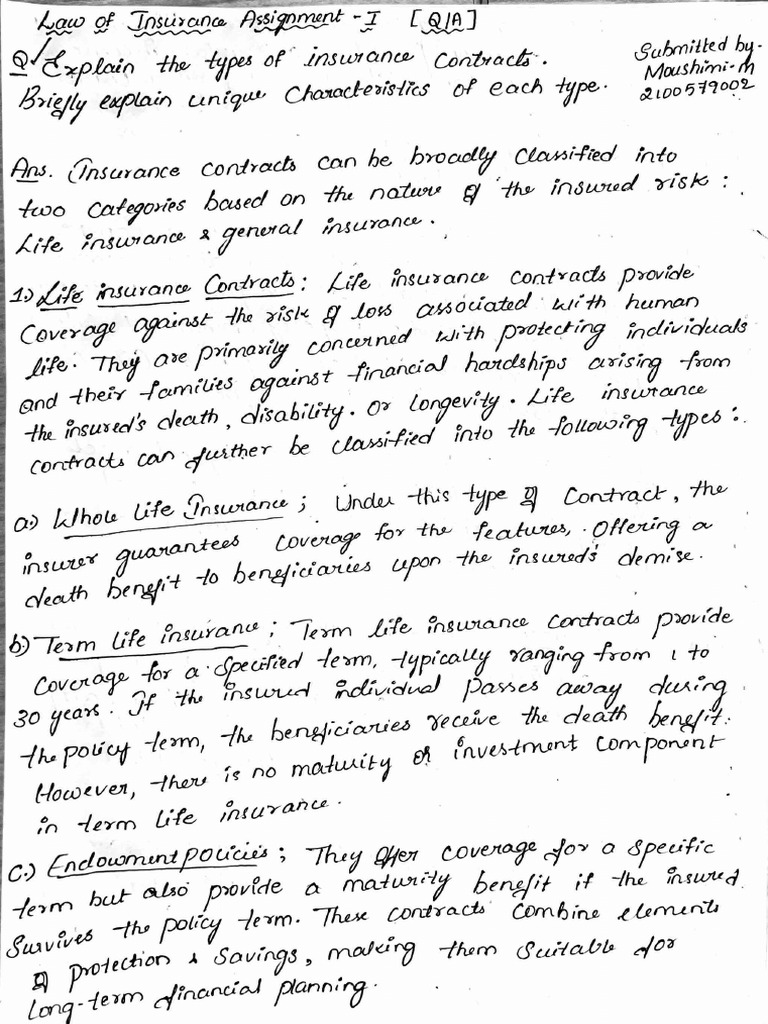 Law of Insurance Assignment - I [Q/A]
Q Explain the types of insurance contracts.
Briefly explain unique characteristics of each type.
Submitted by-
Moushimi-M
2100579002
Ans. Insurance contracts can be broadly classified into
two categories based on the nature of the insured risk:
Life insurance & general insurance.
1.) Life insurance Contracts: Life insurance contracts provide
coverage against the risk of loss associated with human
life. They are primarily concerned with protecting individuals
and their families against financial hardships arising from
the insured's death, disability. Or longevity. Life insurance
contracts can further be classified into the following types:
a.) Whole Life Insurance; Under this type of Contract, the
insurer guarantees coverage for the features, Offering a
death benefit to beneficiaries upon the insured's demise.
b.) Term life insurance; Term life insurance contracts provide
coverage for a specified term, typically ranging from 1 to
30 years. If the insured individual passes away during
the policy term, the beneficiaries receive the death benefit.
However, there is no maturity or investment component
in term life insurance.
c.) Endowment policies; They offer coverage for a specific
term but also provide a maturity benefit if the insured
survives the policy term. These contracts combine elements
of protection & savings, making them suitable for
long-term financial planning.